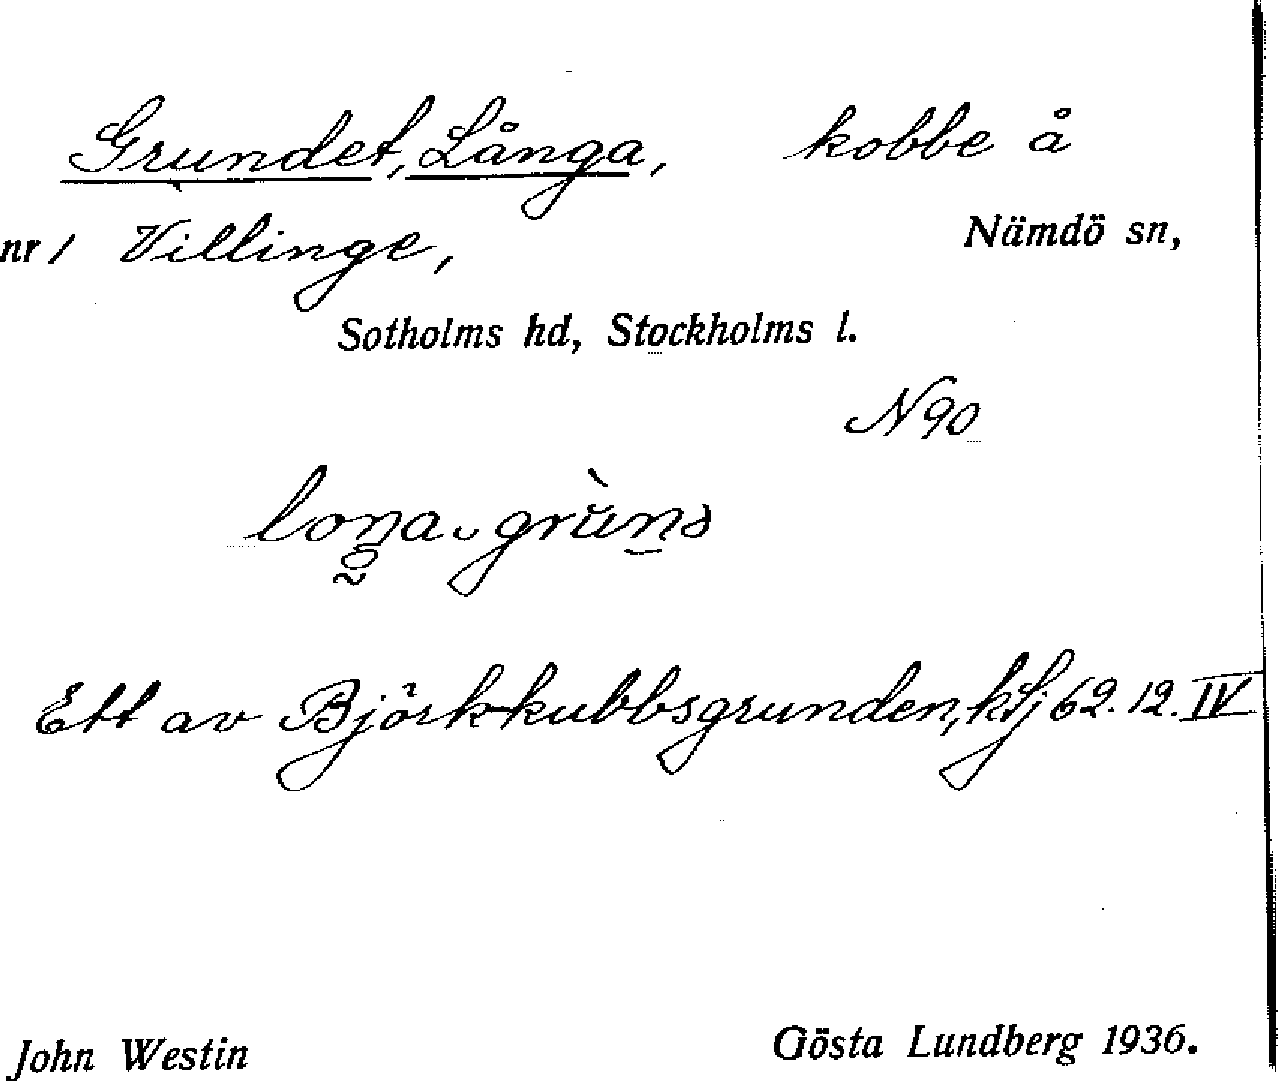 Grundet, Långa, kobbe å
nr 1 Villinge, Nämdö sn,
Sotholms hd, Stockholms l.
N 90
Ett av Björkkubbsgrunden, 62.12.IV
John Westin Gösta Lundberg 1936.